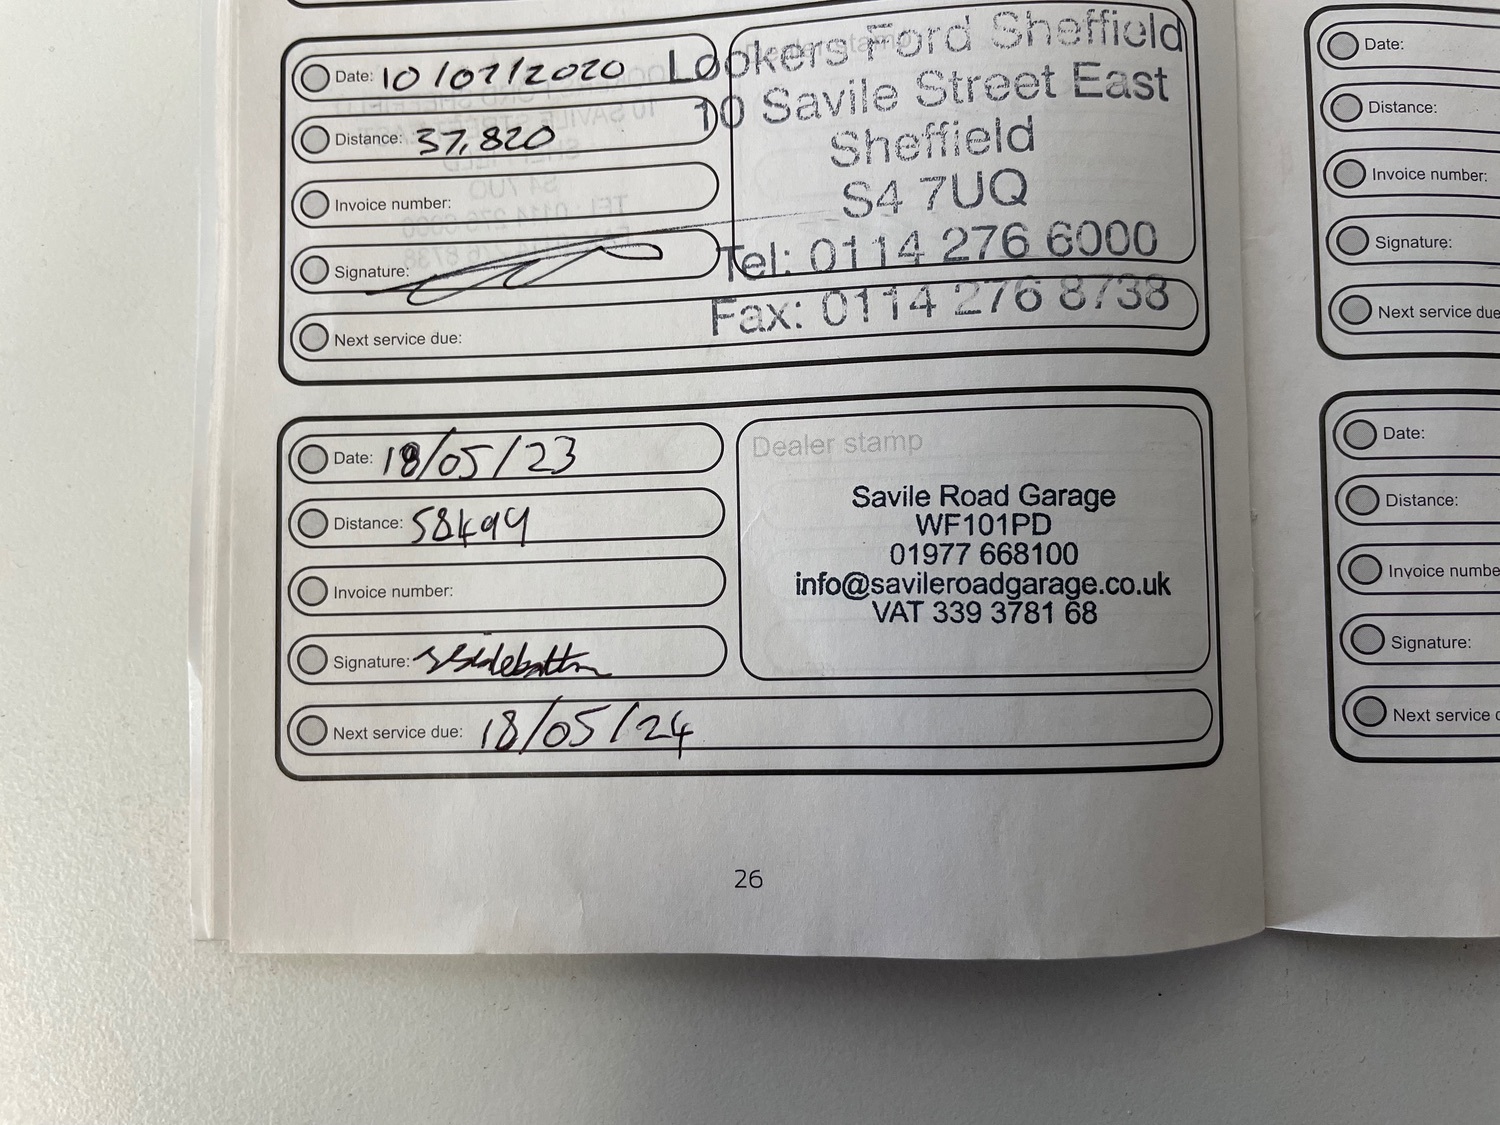 Date: 10/02/2020
Distance: 37,820
Invoice number:
Signature:
Next service due:
Dealer stamp
Lookers Ford Sheffield
10 Savile Street East
Sheffield
S4 7UQ
Tel: 0114 276 6000
Fax: 0114 276 8738
Date: 18/05/23
Distance: 58499
Invoice number:
Signature:
Next service due: 18/05/24
Dealer stamp
Savile Road Garage
WF101PD
01977 668100
info@savileroadgarage.co.uk
VAT 339 3781 68
26
Date:
Distance:
Invoice number:
Signature:
Next service due
Date:
Distance:
Invoice numbe
Signature:
Next service